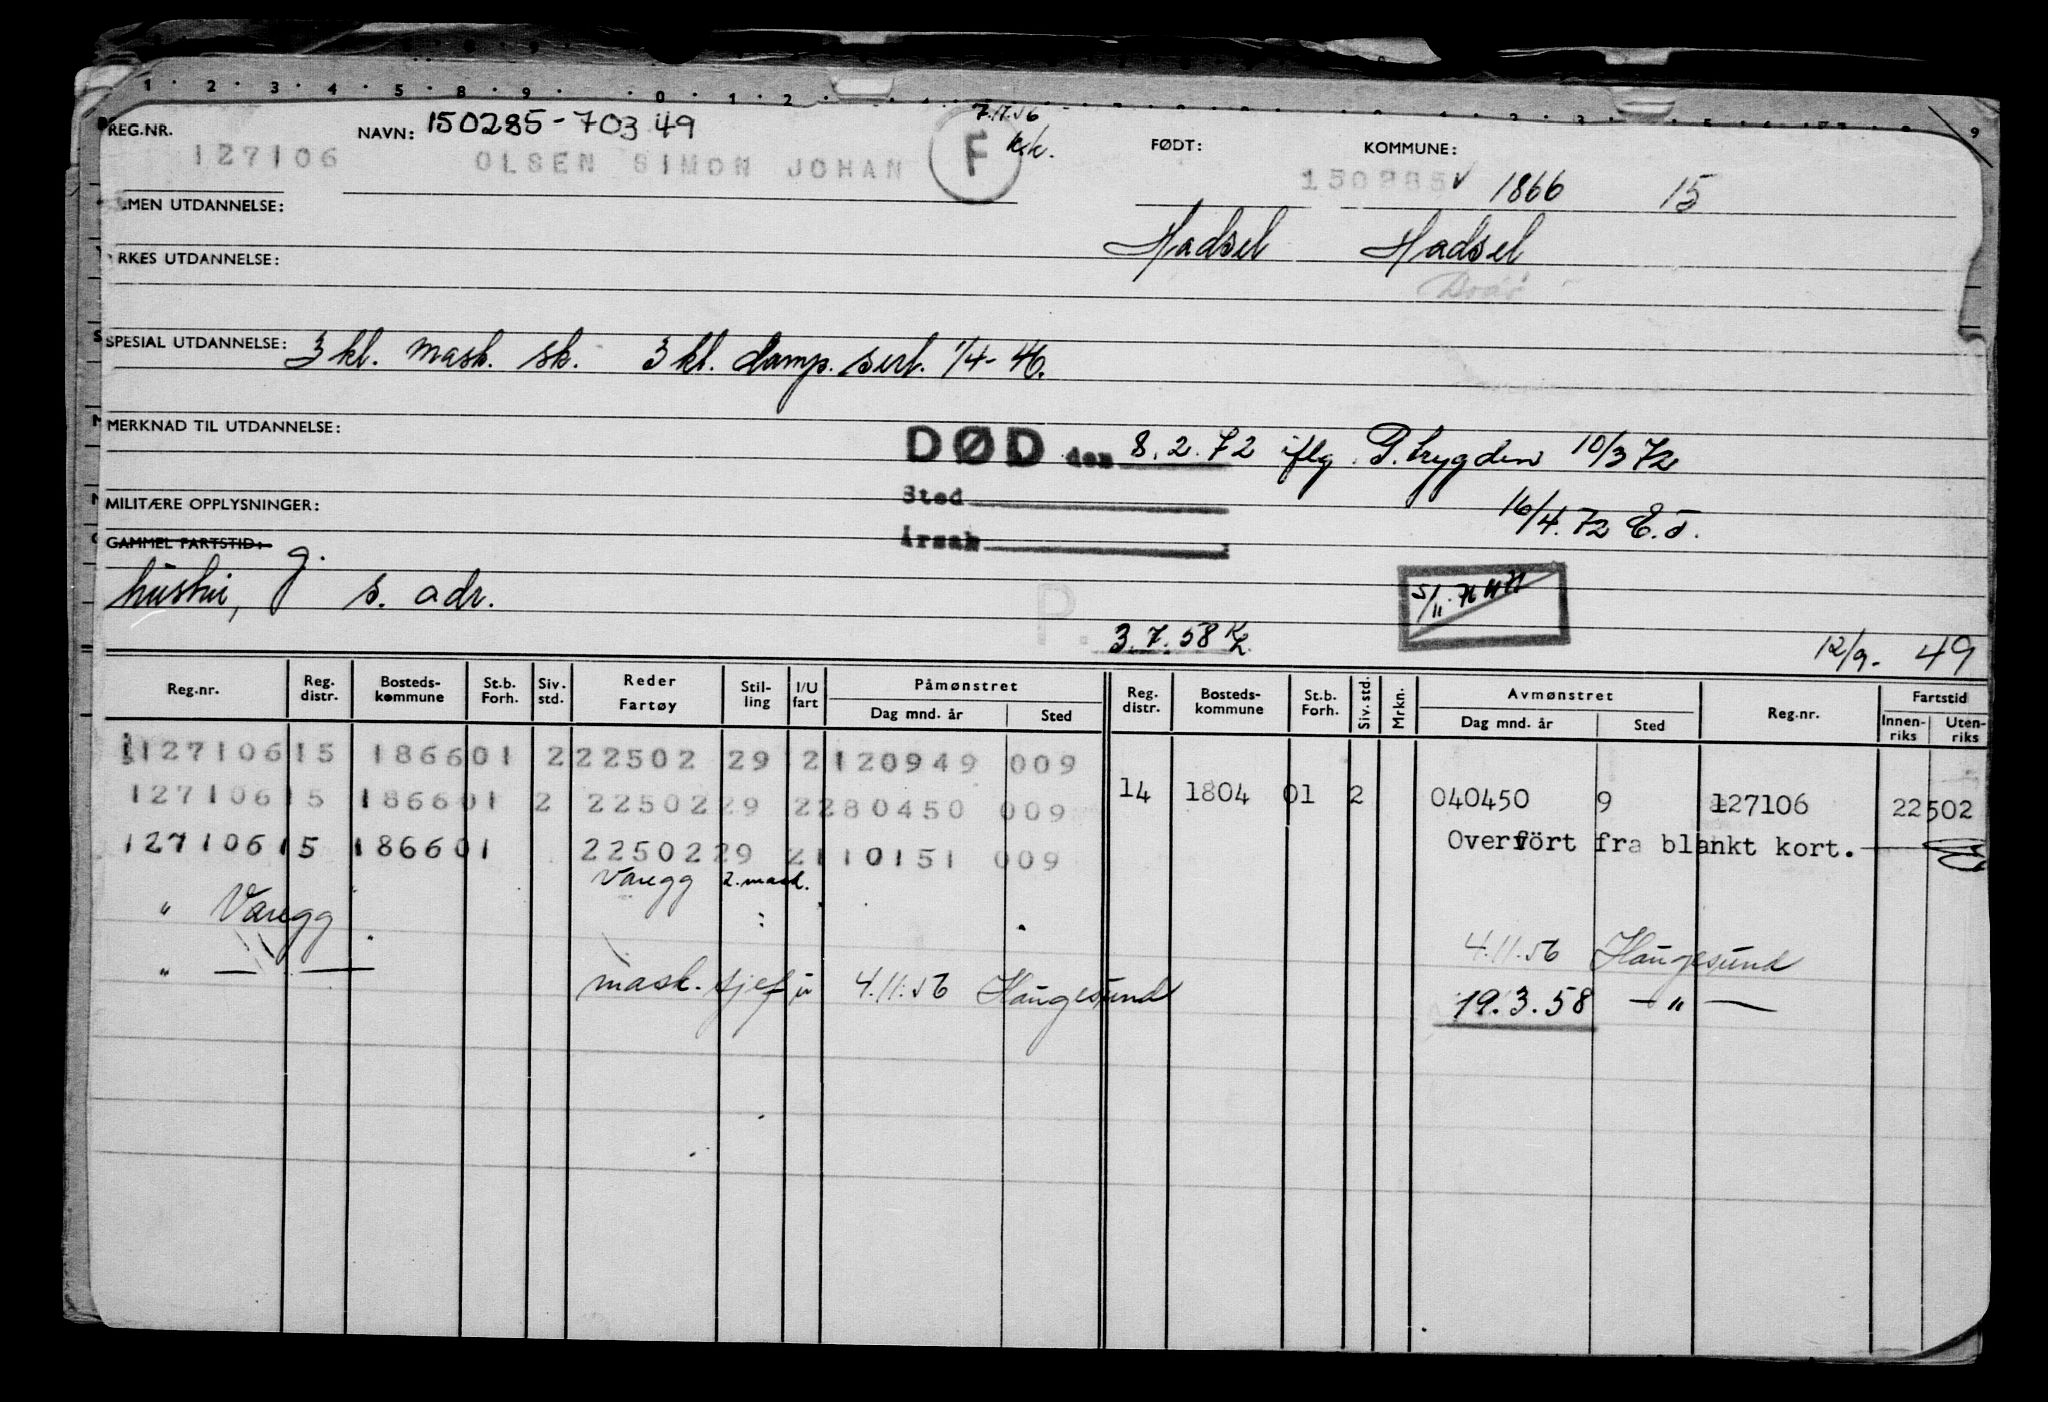 REG.NR. NAVN: 150285-70349 7.11.56 FØDT: KOMMUNE:
127106 OLSEN SIMON JOHAN F k.k. 150285 ✓ 1866 15
MEN UTDANNELSE:
Hadsel Hadsel
RKES UTDANNELSE:
SPESIAL UTDANNELSE: 3 kl. mask. sk. 3 kl. damp. sert. 1/4-46.
MERKNAD TIL UTDANNELSE:
DØD den 8.2.72 iflg. P.trygden 10/3 72
MILITÆRE OPPLYSNINGER: Sted 16/4.72 E.J.
GAMMEL FARTSTID: Årsak
hustru, g. s. adr.
P. 3.7.58 12/9- 49
Reg.nr. Reg. distr. Bosteds-kommune St.b. Forh. Siv. std. Reder Fartøy Stil-ling I/U fart Påmønstret Dag mnd. år Sted Reg. distr. Bosteds-kommune St.b. Forh. Siv. std. Mrkn. Avmønstret Dag mnd. år Sted Reg.nr. Fartstid Innen-riks Uten-riks
127106 15 1866 01 2 22502 29 2 120949 009
127106 15 1866 01 2 22502 29 2 280450 009 14 1804 01 2 040450 9 127106 22502
127106 15 1866 01 22502 29 2 110151 009 Overført fra blankt kort.
Varegg 2. mask.
" Varegg 4.11.56 Haugesund
" — — mask. sjef u 4.11.56 Haugesund 19.3.58 — " —